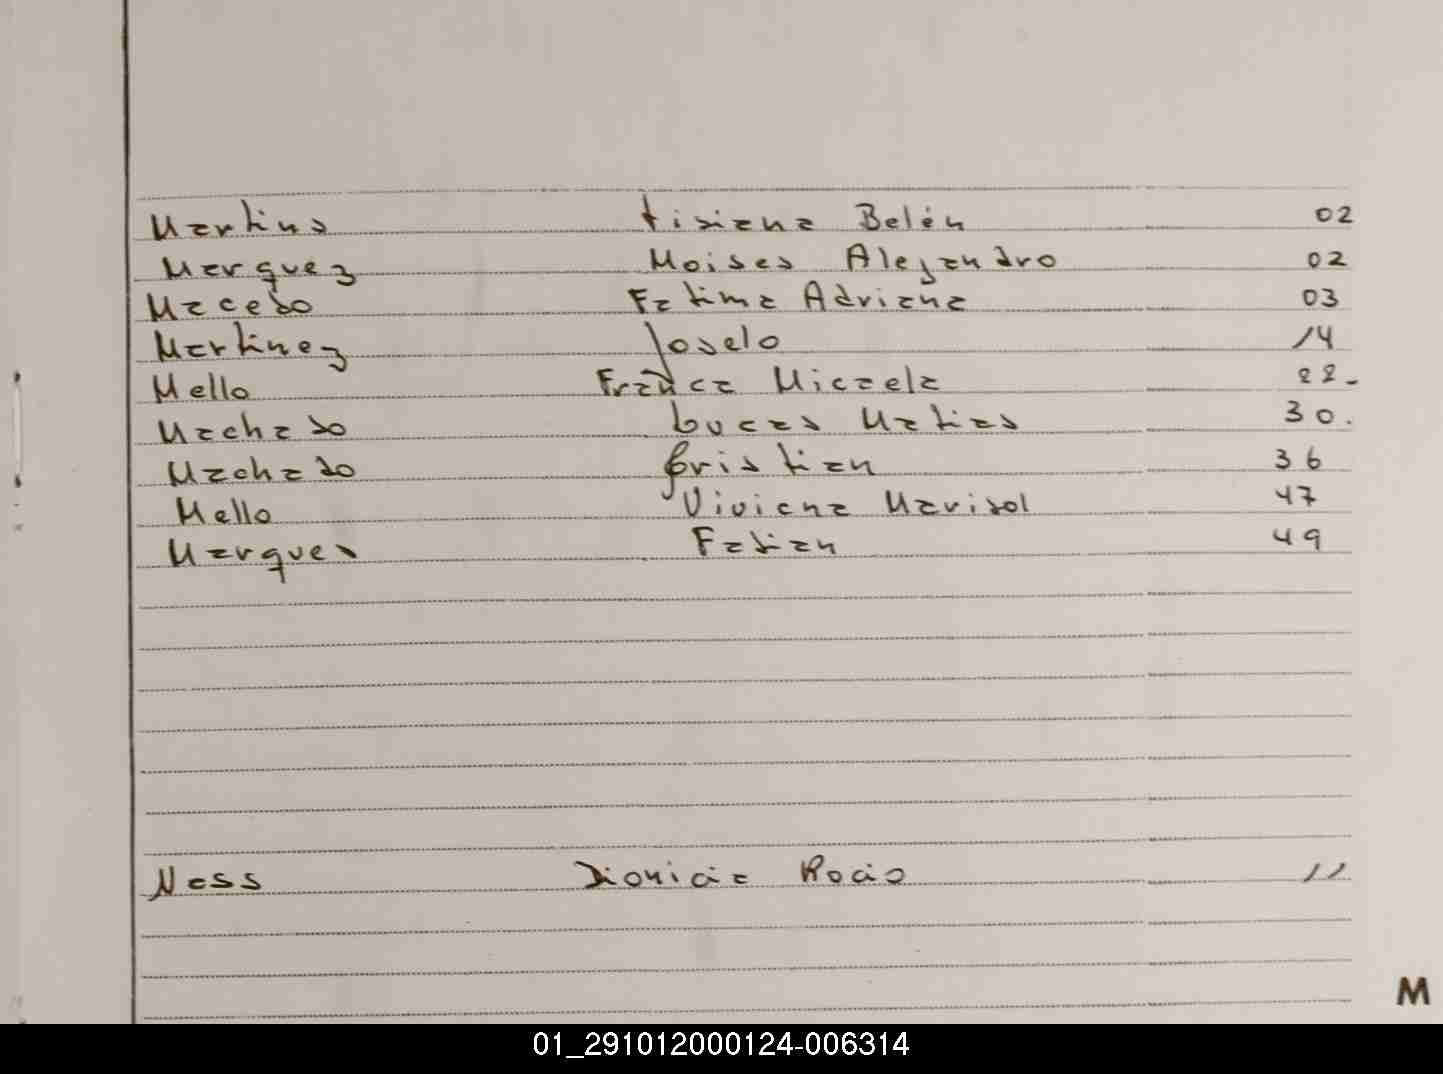 Martins Tisiana Belén 02
Marquez Moises Alejandro 02
Macedo Fatima Adriana 03
Martinez Joselo 14
Mello Franca Micaela 22-
Machado Lucas Matias 30.
Machado Cristian 36
Mello Viviana Marisol 47
Marques Fabian 49
Ness Dionicia Rocio 11
M
01_291012000124-006314